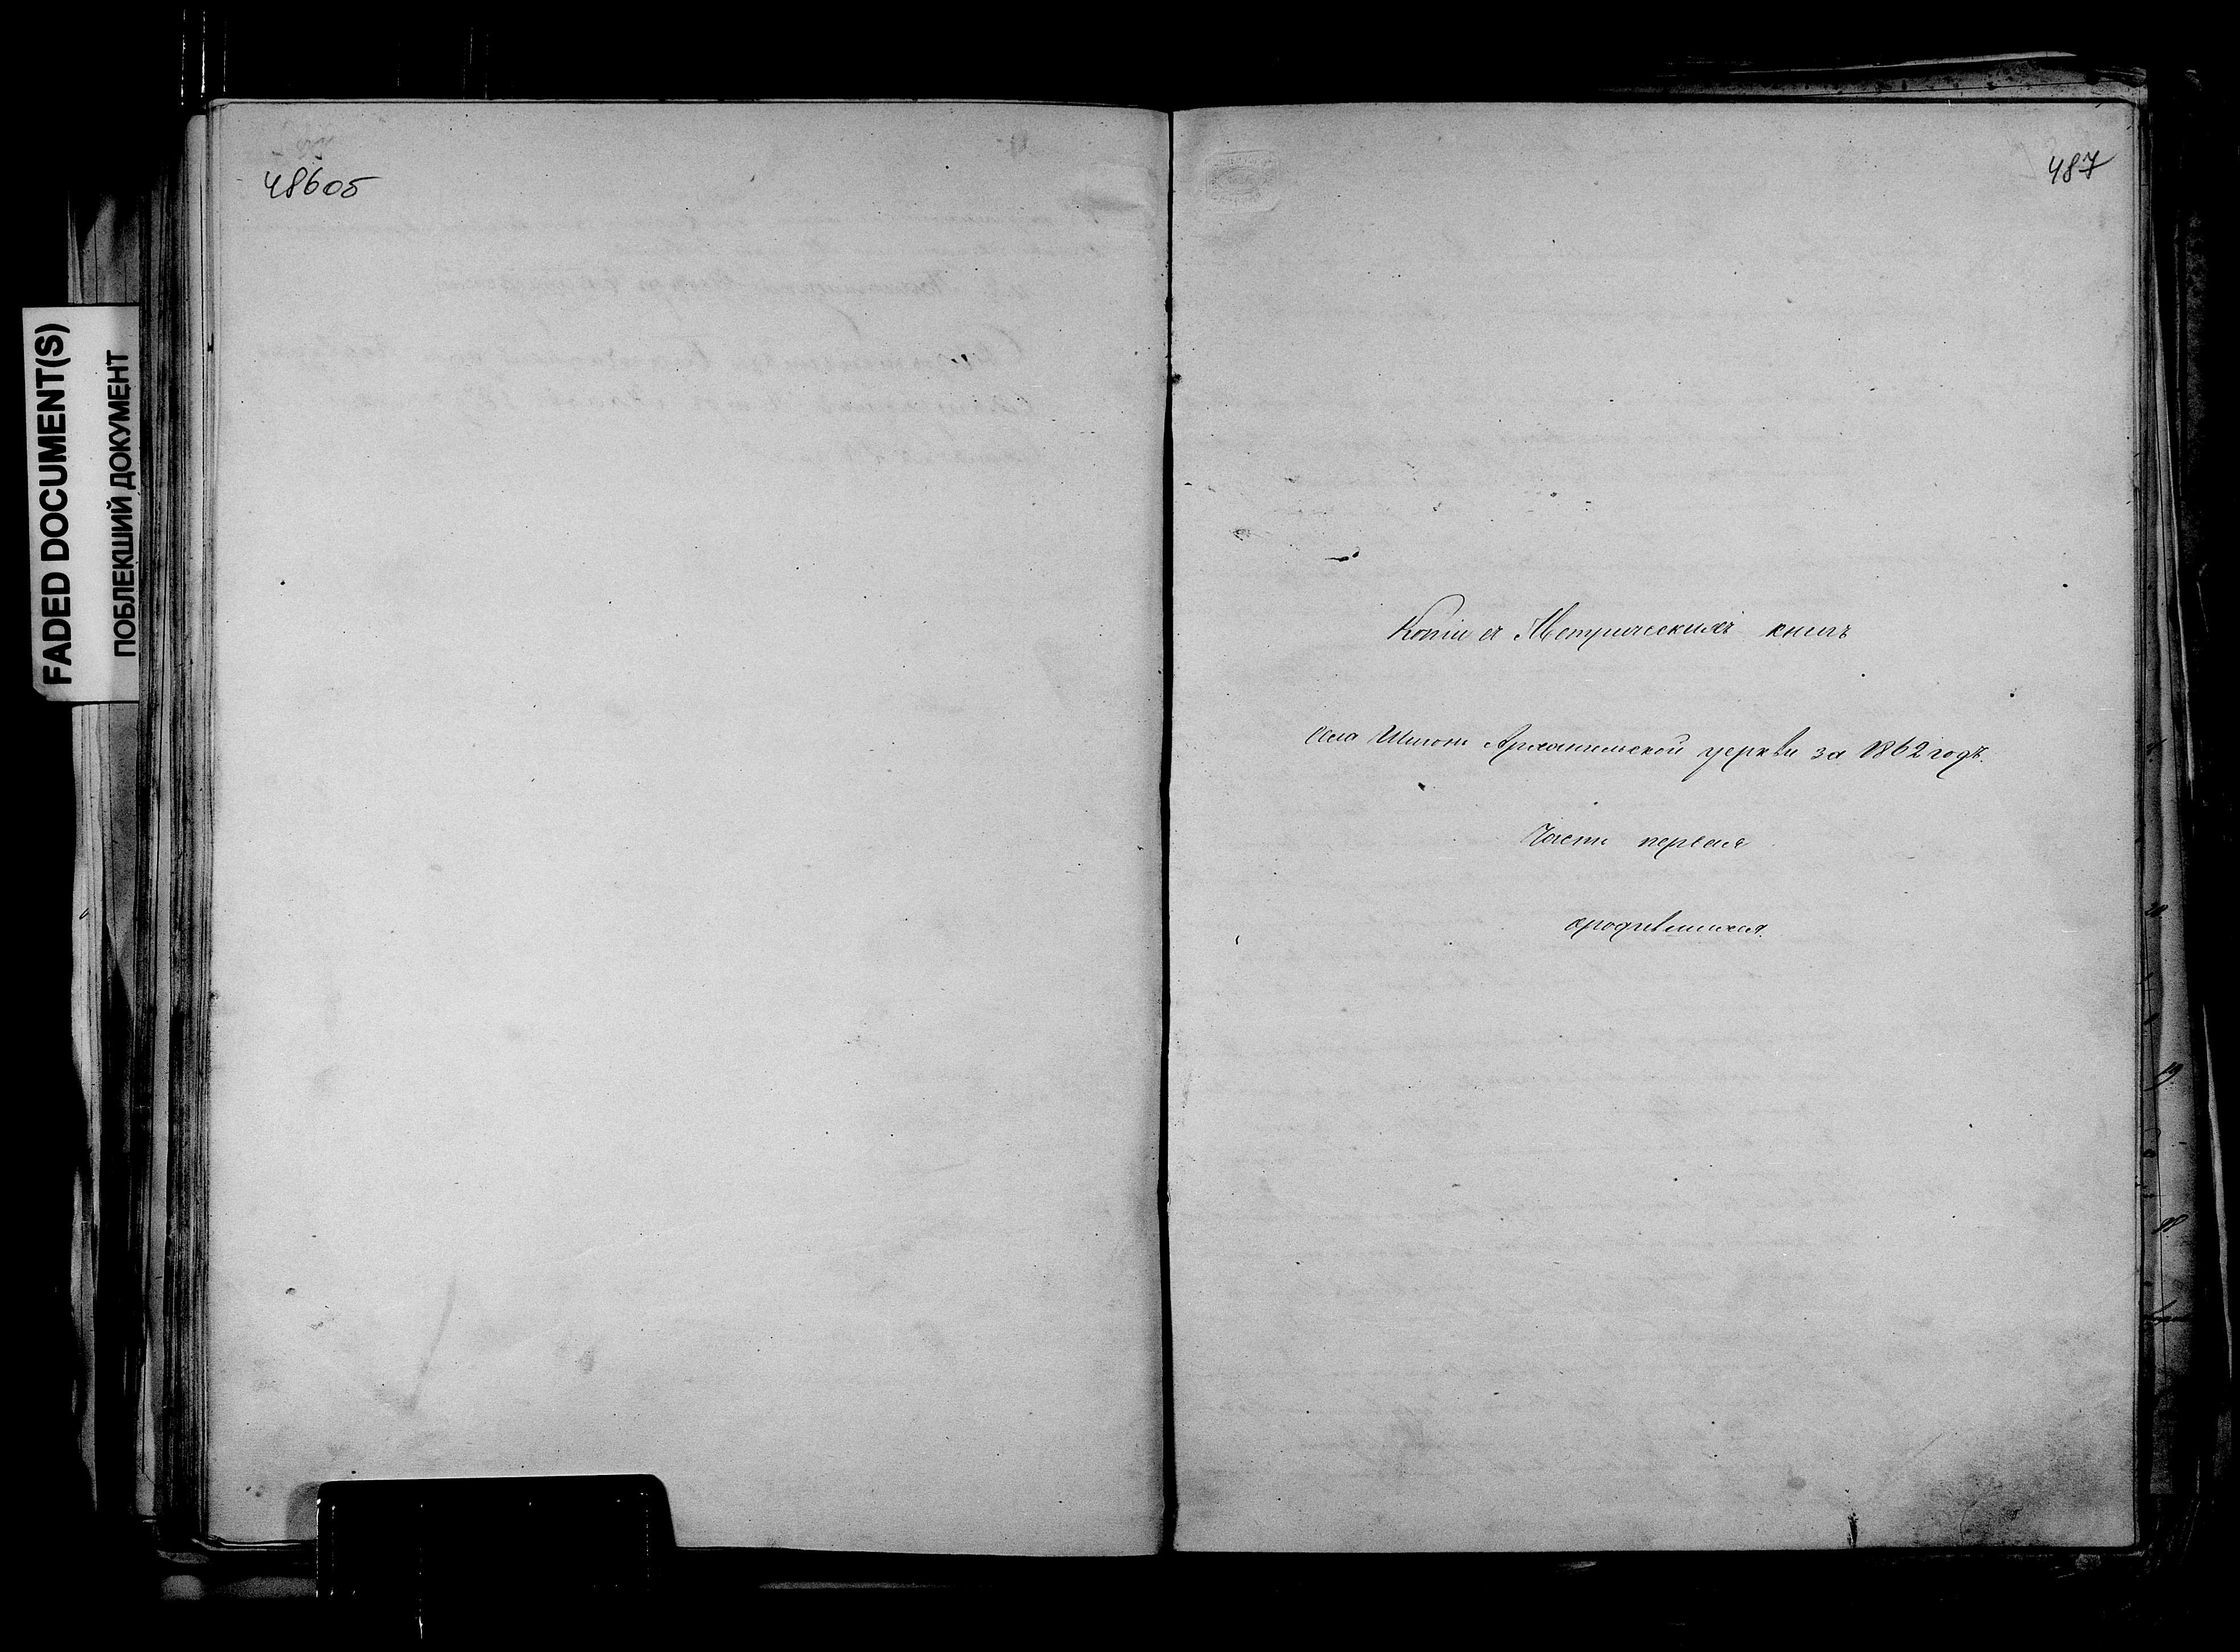 486об
487
FADED DOCUMENT(S)
ПОБЛЕКШИЙ ДОКУМЕНТ
Копіи съ Метрическихъ книгъ
села Архангельской церкви за 1862 годъ.
Часть первая
о родившихся.